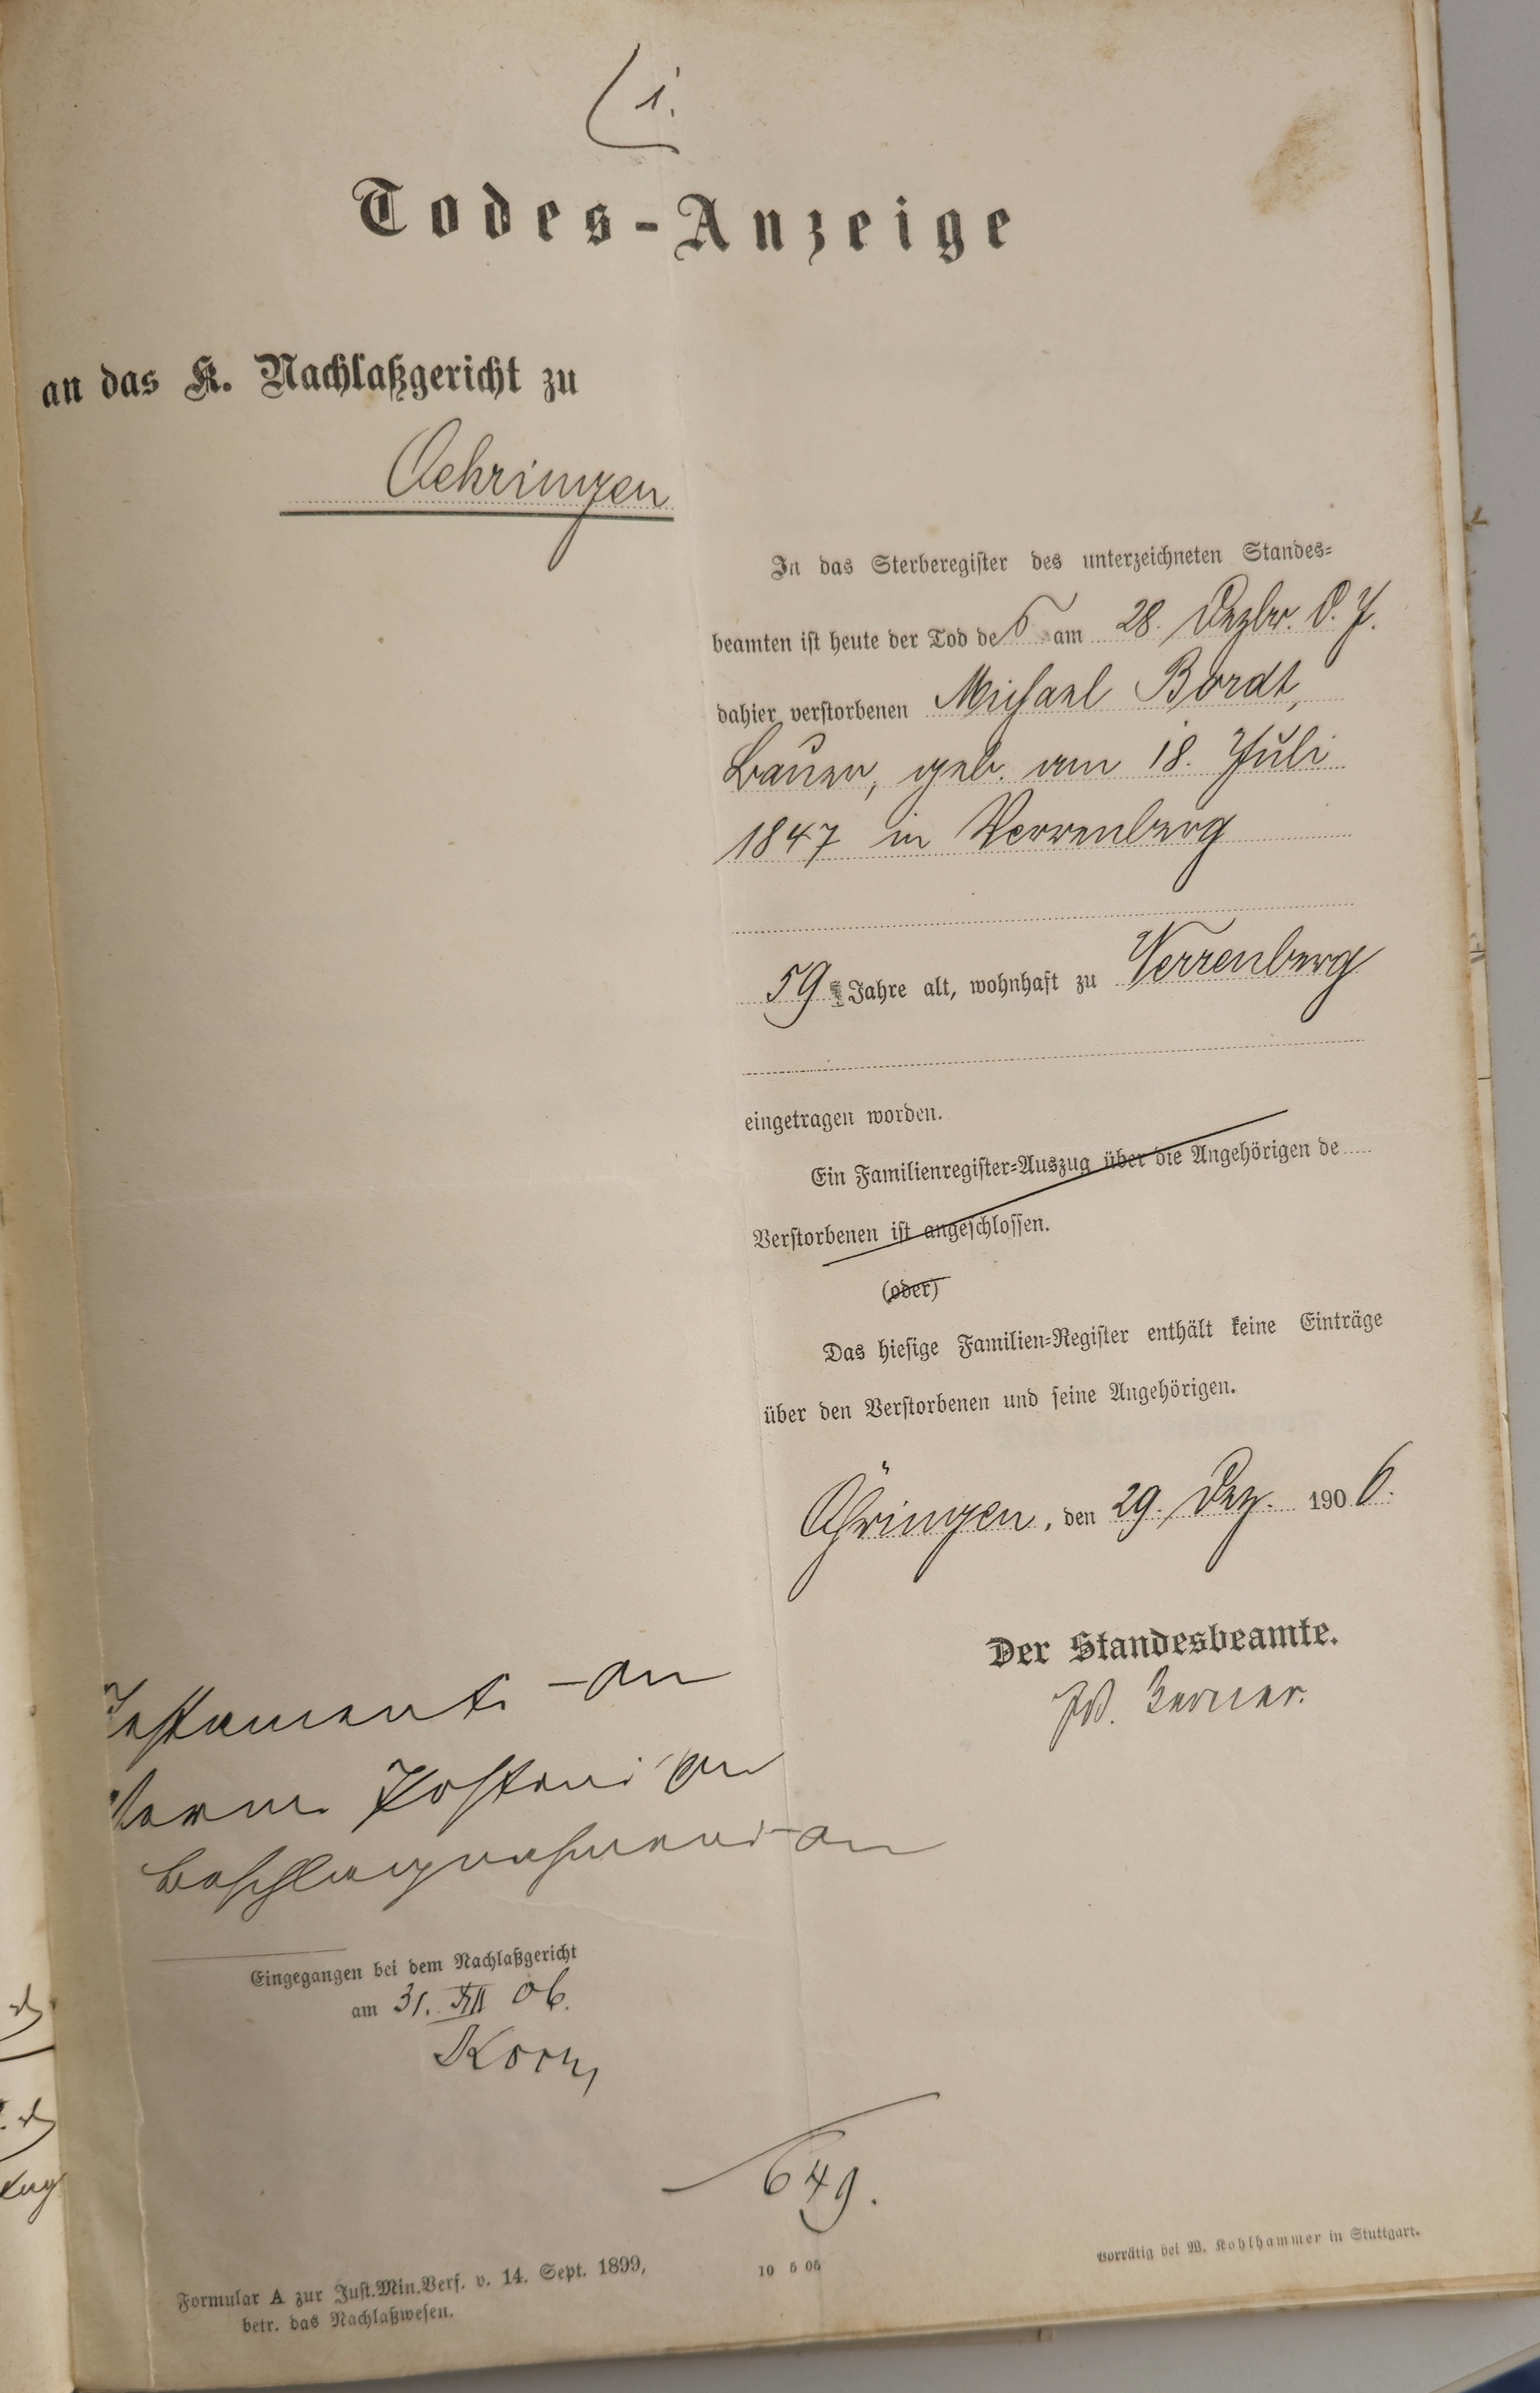 1.
Todes-Anzeige
an das K. Nachlaßgericht zu
Oehringen
In das Sterberegister des unterzeichneten Standes-
beamten ist heute der Tod des am 28. Dezbr. d. J.
dahier verstorbenen Michael Bordt,
Bauer, geb. am 18. Juli
1847 in Verrenberg
59 Jahre alt, wohnhaft zu Verrenberg
eingetragen worden.
Ein Familienregister-Auszug über die Angehörigen de
Verstorbenen ist angeschlossen.
(oder)
Das hiesige Familien-Register enthält keine Einträge
über den Verstorbenen und seine Angehörigen.
Öhringen, den 29. Dez. 1906.
Der Standesbeamte.
Testament
Eingegangen bei dem Nachlaßgericht
am 31. XII 06.
649.
Formular A zur Just.Min.Verf. v. 14. Sept. 1899,
betr. das Nachlaßwesen.
10 5 05
Vorrätig bei W. Kohlhammer in Stuttgart.